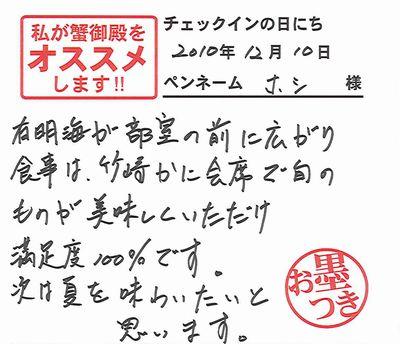 私が蟹御殿を
オススメ
します!!
チェックインの日にち
2010年 12月 10日
ペンネーム ホシ 様
有明海が部室の前に広がり
食事は、竹崎かに会席で旬の
ものが美味しくいただけ
満足度100%です。
次は夏を味わいたいと
思います。
お墨つき